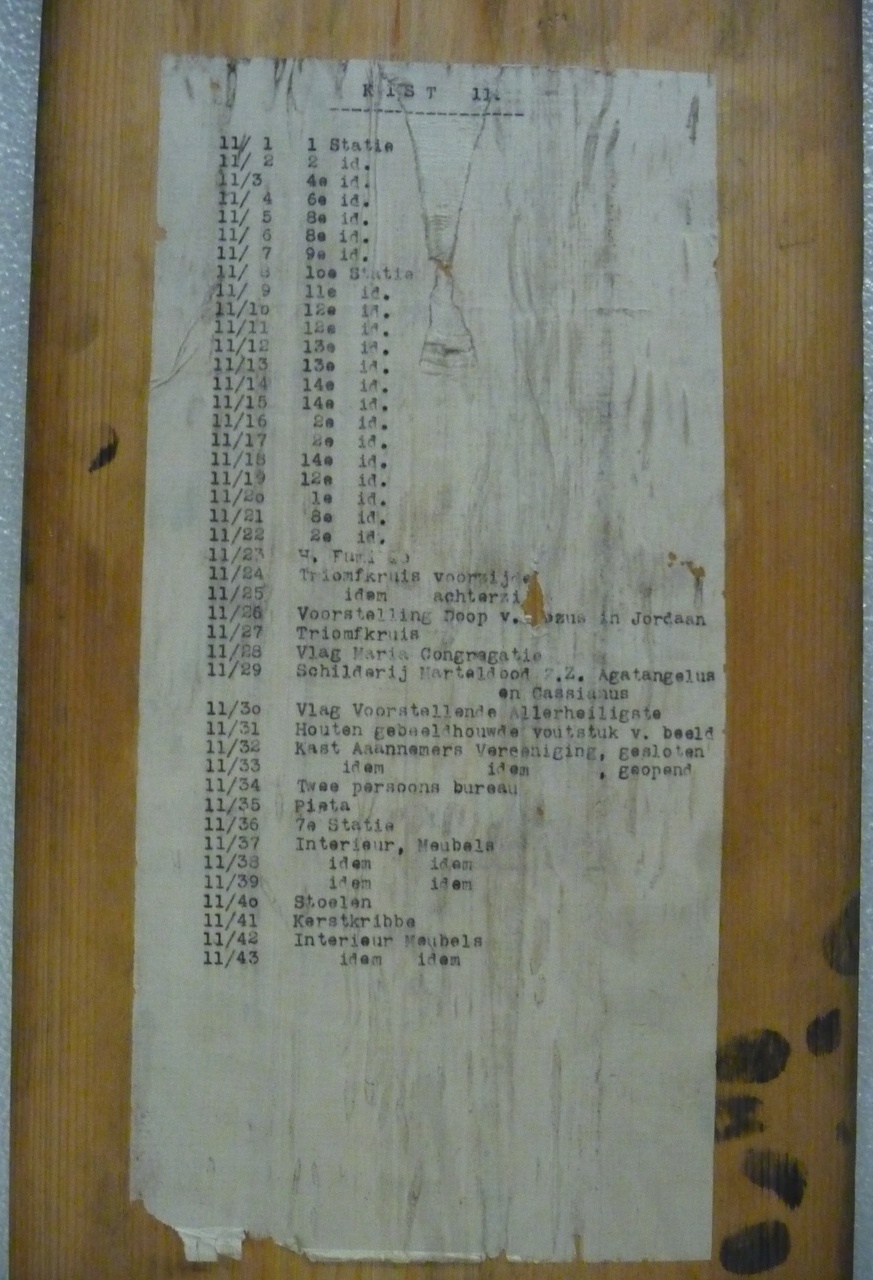 KIST 11.
11/ 1 1 Statie
11/ 2 2 id.
11/3 4e id.
11/ 4 6e id.
11/ 5 8e id.
11/ 6 8e id.
11/ 7 9e id.
11/ 8 1oe Statie
11/ 9 11e id.
11/1o 12e id.
11/11 12e id.
11/12 13e id.
11/13 13e id.
11/14 14e id.
11/15 14e id.
11/16 2e id.
11/17 2e id.
11/18 14e id.
11/19 12e id.
11/2o 1e id.
11/21 8e id.
11/22 2e id.
11/23 H.
11/24 Triomfkruis voorzijde
11/25 idem
11/26 Voorstelling Doop v. in Jordaan
11/27 Triomfkruis
11/28 Vlag Maria Congregatie
11/29 Schilderij Marteldood Z.Z. Agatangelus
en Cassianus
11/3o Vlag Voorstellende Allerheiligste
11/31 Houten gebeeldhouwde voutstuk v. beeld
11/32 Kast Aaannemers Vereeniging, gesloten
11/33 idem idem , geopend
11/34 Twee persoons bureau
11/35 Pieta
11/36 7e Statie
11/37 Interieur, Meubels
11/38 idem idem
11/39 idem idem
11/4o Stoelen
11/41 Kerstkribbe
11/42 Interieur Meubels
11/43 idem idem